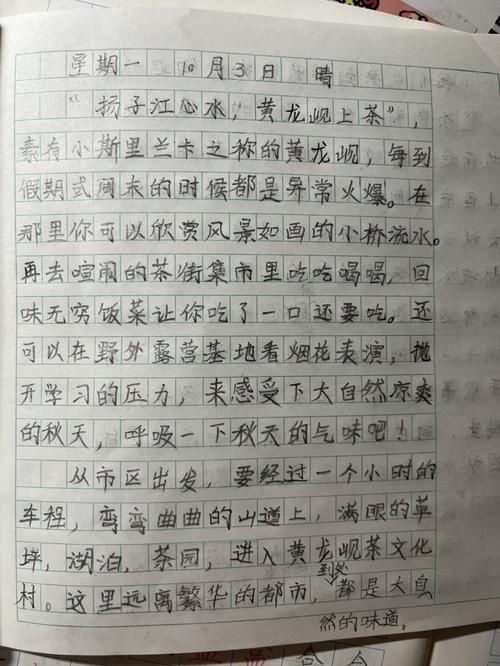 星期一 10月3日 晴
“扬子江心水，黄龙岘上茶”，
素有小斯里兰卡之称的黄龙岘，每到
假期或周末的时候都是异常火爆。在
那里你可以欣赏风景如画的小桥流水。
再去喧闹的茶街集市里吃吃喝喝，回
味无穷饭菜让你吃了一口还要吃。还
可以在野外露营基地看烟花表演，抛
开学习的压力，来感受下大自然凉爽
的秋天，呼吸一下秋天的气味吧！
从市区出发，要经过一个小时的
车程，弯弯曲曲的山道上，满眼的草
坪，湖泊，茶园，进入黄龙岘茶文化
村。这里远离繁华的都市，到处都是大自
然的味道。